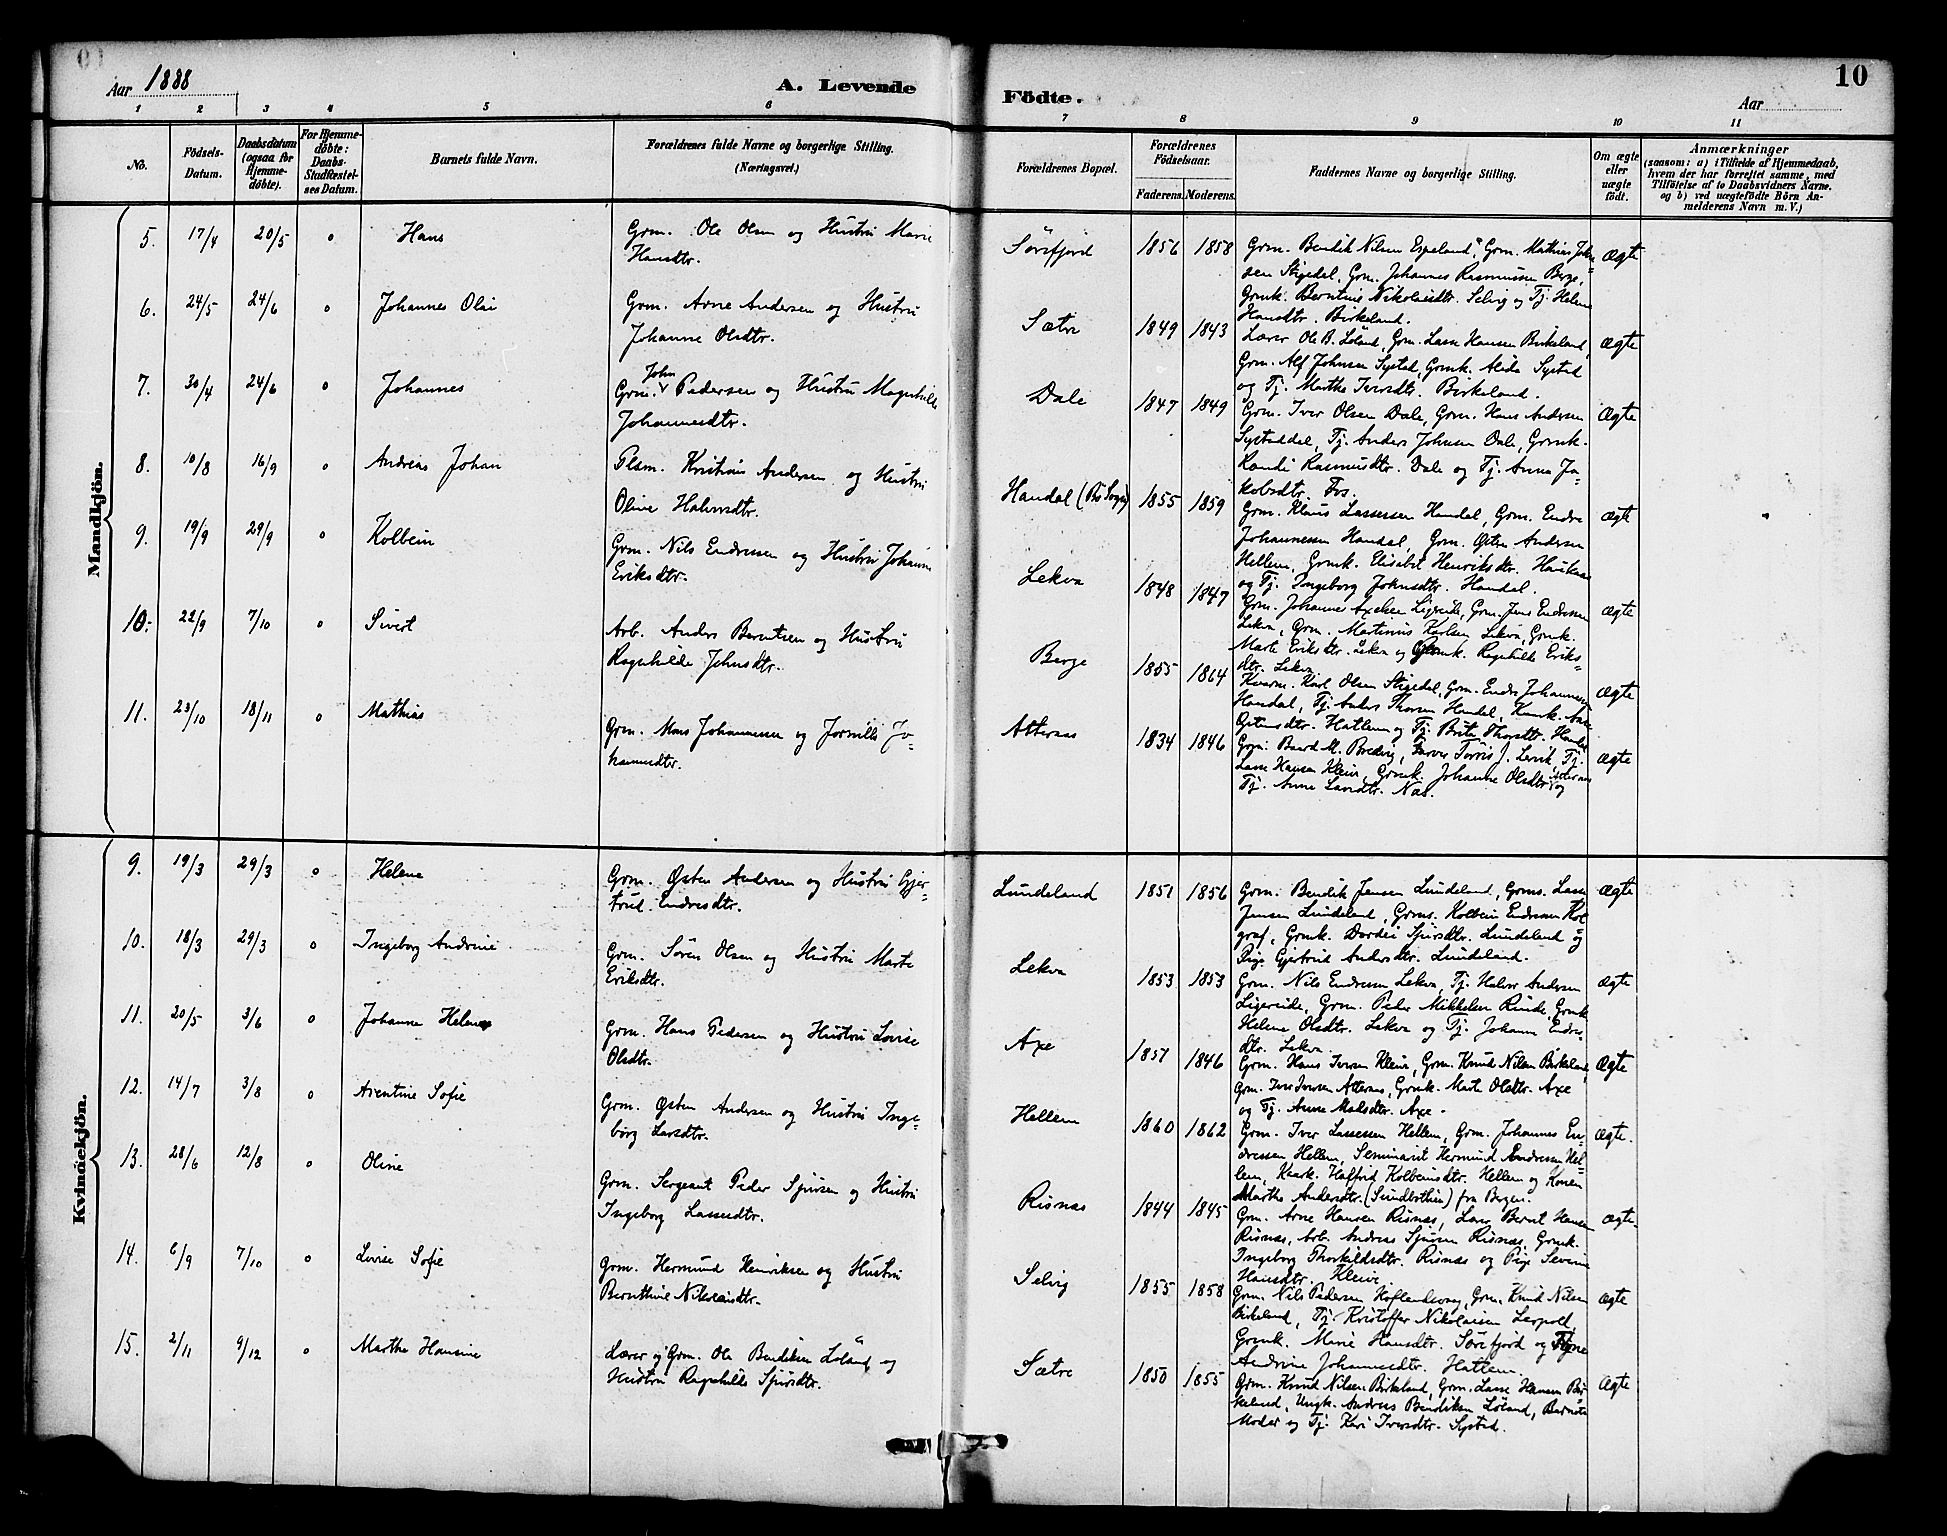 Aar 1888
A. Levende
Födte.
Aar
10
1 2 3 4 5 6 7 8 9 10 11
No.
Födsels-
Datum.
Daabsdatum
(ogsaa for
Hjemme-
döbte).
For Hjemme-
döbte:
Daabs-
Stadfæstel-
ses Datum.
Barnets fulde Navn.
Forældrenes fulde Navne og borgerlige Stilling.
(Næringsvei.)
Forældrenes Bopæl.
Forældrenes
Födselsaar.
Faderens. Moderens.
Faddernes Navne og borgerlige Stilling.
Om ægte
eller
uægte
födt.
Anmærkninger
(saasom: a) i Tilfælde af Hjemmedaab,
hvem der har forrettet samme, med
Tilföielse af to Daabsvidners Navne.
og b) ved uægtefödte Börn An-
melderens Navn m. V.)
Mandkjön.
5. 17/4 20/5 o Hans
Grm. Ole Olsen og Hustru Marie
Hansdtr.
Sörefjord 1856 1858
Grm. Bendik Nilsen Espeland, Grm. Mathias John-
sen Stigedal, Grm. Johannes Rasmussen Berge,
Grmk. Berntine Nikolaisdtr. Selvig og Tj. Helene
Hansdtr. Birkeland.
Ægte
6. 24/5 24/6 o Johannes Olai
Grm. Arne Andersen og Hustru
Johanne Olsdtr.
Sætre 1849 1843
Lærer Ole B. Löland, Grm. Lasse Hansen Birkeland,
Grm. Alf Johnsen Systad, Grmk. Alida Systad
og Tj. Marthe Iversdtr. Birkeland.
Ægte
7. 30/4 24/6 o Johannes
John
Grm. v Pedersen og Hustru Magnhilde
Johannesdtr.
Dale 1847 1849
Grm. Iver Olsen Dale, Grm. Hans Andersen
Systaddal, Tj. Anders Johnsen Dale, Grmk.
Randi Rasmusdtr. Dale og Tj. Anna Ja-
kobsdtr. Fos.
Ægte
8. 10/8 16/9 o Andreas Johan
Plsm. Kristian Andersen og Hustru
Oline Halvorsdtr.
Handal (Bö Sogn) 1855 1859
Grm. Klaus Lassessen Handal, Grm. Endre
Johannessen Handal, Grm. Østen Andersen
Hellem, Grmk. Elisabet Henriksdtr.
og Tj. Ingeborg Johnsdtr. Handal.
Ægte
9. 19/9 29/9 o Kolbein
Grm. Nils Endressen og Hustru Johanne
Eriksdtr.
Lekva 1848 1847
Grm. Johannes Axelsen Ligreide, Grm. Jens Endressen
Lekva, Grm. Martinus Karlsen Lekva, Grmk.
Marte Eriksdtr. Lekva og Grmk. Ragnhilde Eriks-
dtr. Lekva
Ægte
10. 22/9 7/10 o Sivert
Arb. Anders Berntsen og Hustru
Ragnhilde Johnsdtr.
Berge 1855 1864
Kvarm. Karl Olsen Stigedal, Grm. Endre Johannessen
Handal, Tj. Anders Thorsen Handal, Kaark. Anne
Østensdtr. Hatlem og Tj. Brite Thorsdtr. Handal
Ægte
11. 23/10 18/11 o Mathias
Grm. Mons Johannessen og Jormilli Jo-
hannesdtr.
Atteraas 1834 1846
Grm. Baard M. Bredvig, Farver Torris J. Lervik, Tj.
Lasse Hansen Kleiva, Grmk. Johanne Olsdtr. Atteraas
og
Tj. Anne Larsdtr. Næs.
Ægte
Kvindekjön.
9. 19/3 29/3 o Helene
Grm. Østen Andersen og Hustru Gjer-
trud Endresdtr.
Lundeland 1851 1856
Grm. Bendik Jensen Lundeland, Grms. Lasse
Jensen Lundeland, Grms. Kolbein Endresen Kol-
graf, Grmk. Dordei Sjursdtr. Lundeland og
Pige Gjertrud Andersdtr. Lundeland.
Ægte
10. 18/3 29/3 o Ingeborg Andrine
Grm. Sören Olsen og Hustru Marte
Eriksdtr.
Lekva 1853 1853
Grm. Nils Endressen Lekva, Tj. Halvor Andersen
Ligereide, Grm. Peder Mikkelsen Runde, Grmk.
Helene Olsdtr. Lekva og Tj. Johanne Endres-
dtr. Lekva.
Ægte
11. 20/5 3/6 o Johanne Helene
Grm. Hans Pedersen og Hustru Lovise
Olsdtr.
Axe 1851 1846
Grm. Hans Iversen Kleiva, Grm. Knud Nilsen Birkeland,
Grm. Iver Iversen Atteraas, Grmk. Marte Olsdtr. Axe
og Tj. Anne Matsdtr. Axe.
Ægte
12. 14/7 3/8 o Arentine Sofie
Grm. Østen Andersen og Hustru Inge-
borg Larsdtr.
Hellem 1860 1862
Grm. Iver Lassessen Hellem, Grm. Johannes En-
dressen Hellem, Seminarist Hermund Andressen Hel-
lem, Kaark. Halfrid Kolbeinsdtr. Hellem og Konen
Marthe Andersdtr. (Sundbothun) fra Bergen.
Ægte.
13. 28/6 12/8 o Oline
Grm. Sergeant Peder Sjursen og Hustru
Ingeborg Lassesdtr.
Risnæs 1844 1845
Grm. Arne Hansen Risnæs, Lars Bernt Hansen
Risnæs, Arb. Andreas Sjursen Risnæs, Grmk.
Ingeborg Thorkildsdtr. Risnæs og Pige Severine
Hansdtr. Kleive.
Ægte.
14. 6/9 7/10 o Lovise Sofie
Grm. Hermund Henriksen og Hustru
Bernthine Nikolaisdtr.
Selvig 1855 1858
Grm. Nils Pedersen Höflandsvaag, Grm. Knud Nilsen
Birkeland, Tj. Kristoffer Nikolaisen Leopold,
Grmk. Marie Hansdtr. Sörefjord og Pigene
Andrine Johannesdtr. Hatlem.
Ægte
15. 2/11 9/12 o Marthe Hansine
Lærer og Grm. Ole Bendiksen Löland og
Hustru Ragnhilde Sjursdtr.
Sætre 1850 1855
Grm. Knud Nilsen Birkeland, Grm. Lasse Hansen Bir-
keland, Ungk. Andreas Bendiksen Löland, Barnets
Moder og Tj. Kari Iversdtr. Systad.
Ægte